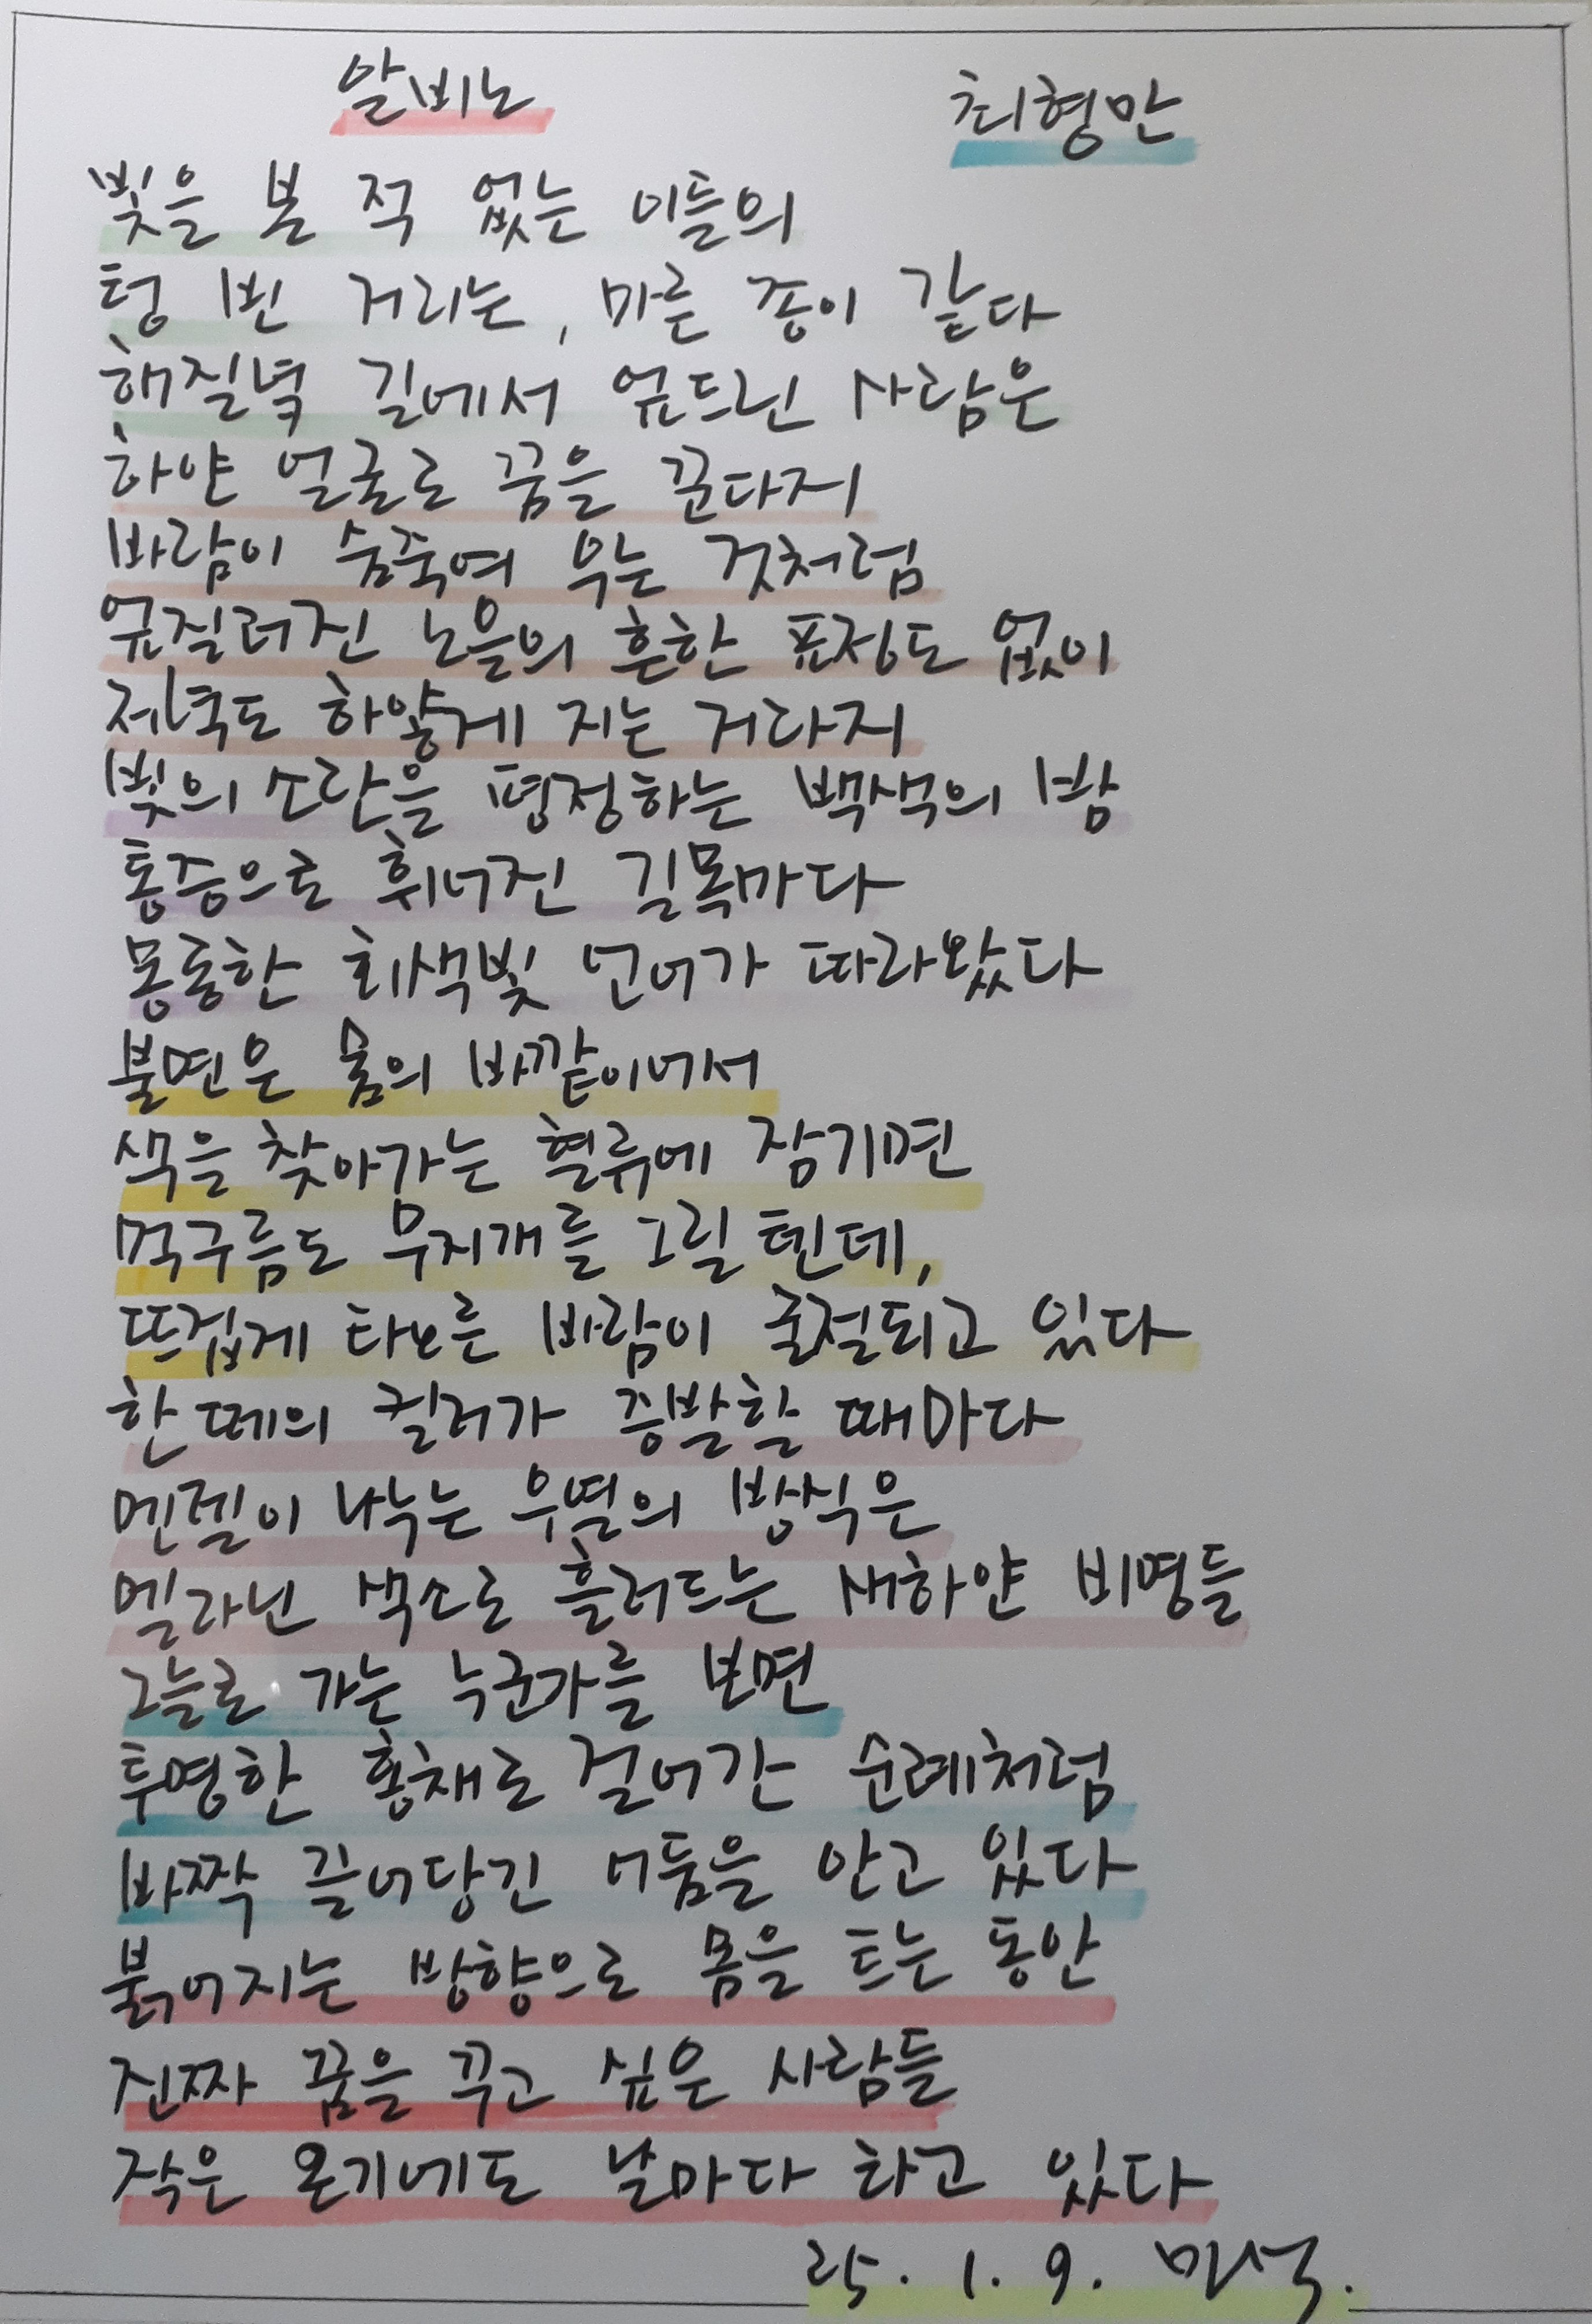 알비노 최형만
빛을 본 적 없는 이들의
텅 빈 거리는, 마른 종이 같다
해질녘 길에서 엎드린 사람은
하얀 얼굴로 꿈을 꾼다지
바람이 숨죽여 우는 것처럼
엎질러진 노을의 흔한 표정도 없이
저녁도 하얗게 지는 거라지
빛의 소란을 평정하는 백색의 밤
통증으로 휘어진 길목마다
몽롱한 회색빛 언어가 따라왔다
불면은 몸의 바깥이어서
색을 찾아가는 혈류에 잠기면
먹구름도 무지개를 그릴 텐데,
뜨겁게 타오른 바람이 굴절되고 있다
한 떼의 컬러가 증발할 때마다
멘젤이 나누는 우열의 방식은
멜라닌 색소로 흘러드는 새하얀 비명들
그늘로 가는 누군가를 보면
투명한 홍채로 걸어간 순례처럼
바짝 끌어당긴 어둠을 안고 있다
붉어지는 방향으로 몸을 트는 동안
진짜 꿈을 꾸고 싶은 사람들
작은 온기에도 날마다 타고 있다
25. 1. 9. 민석.